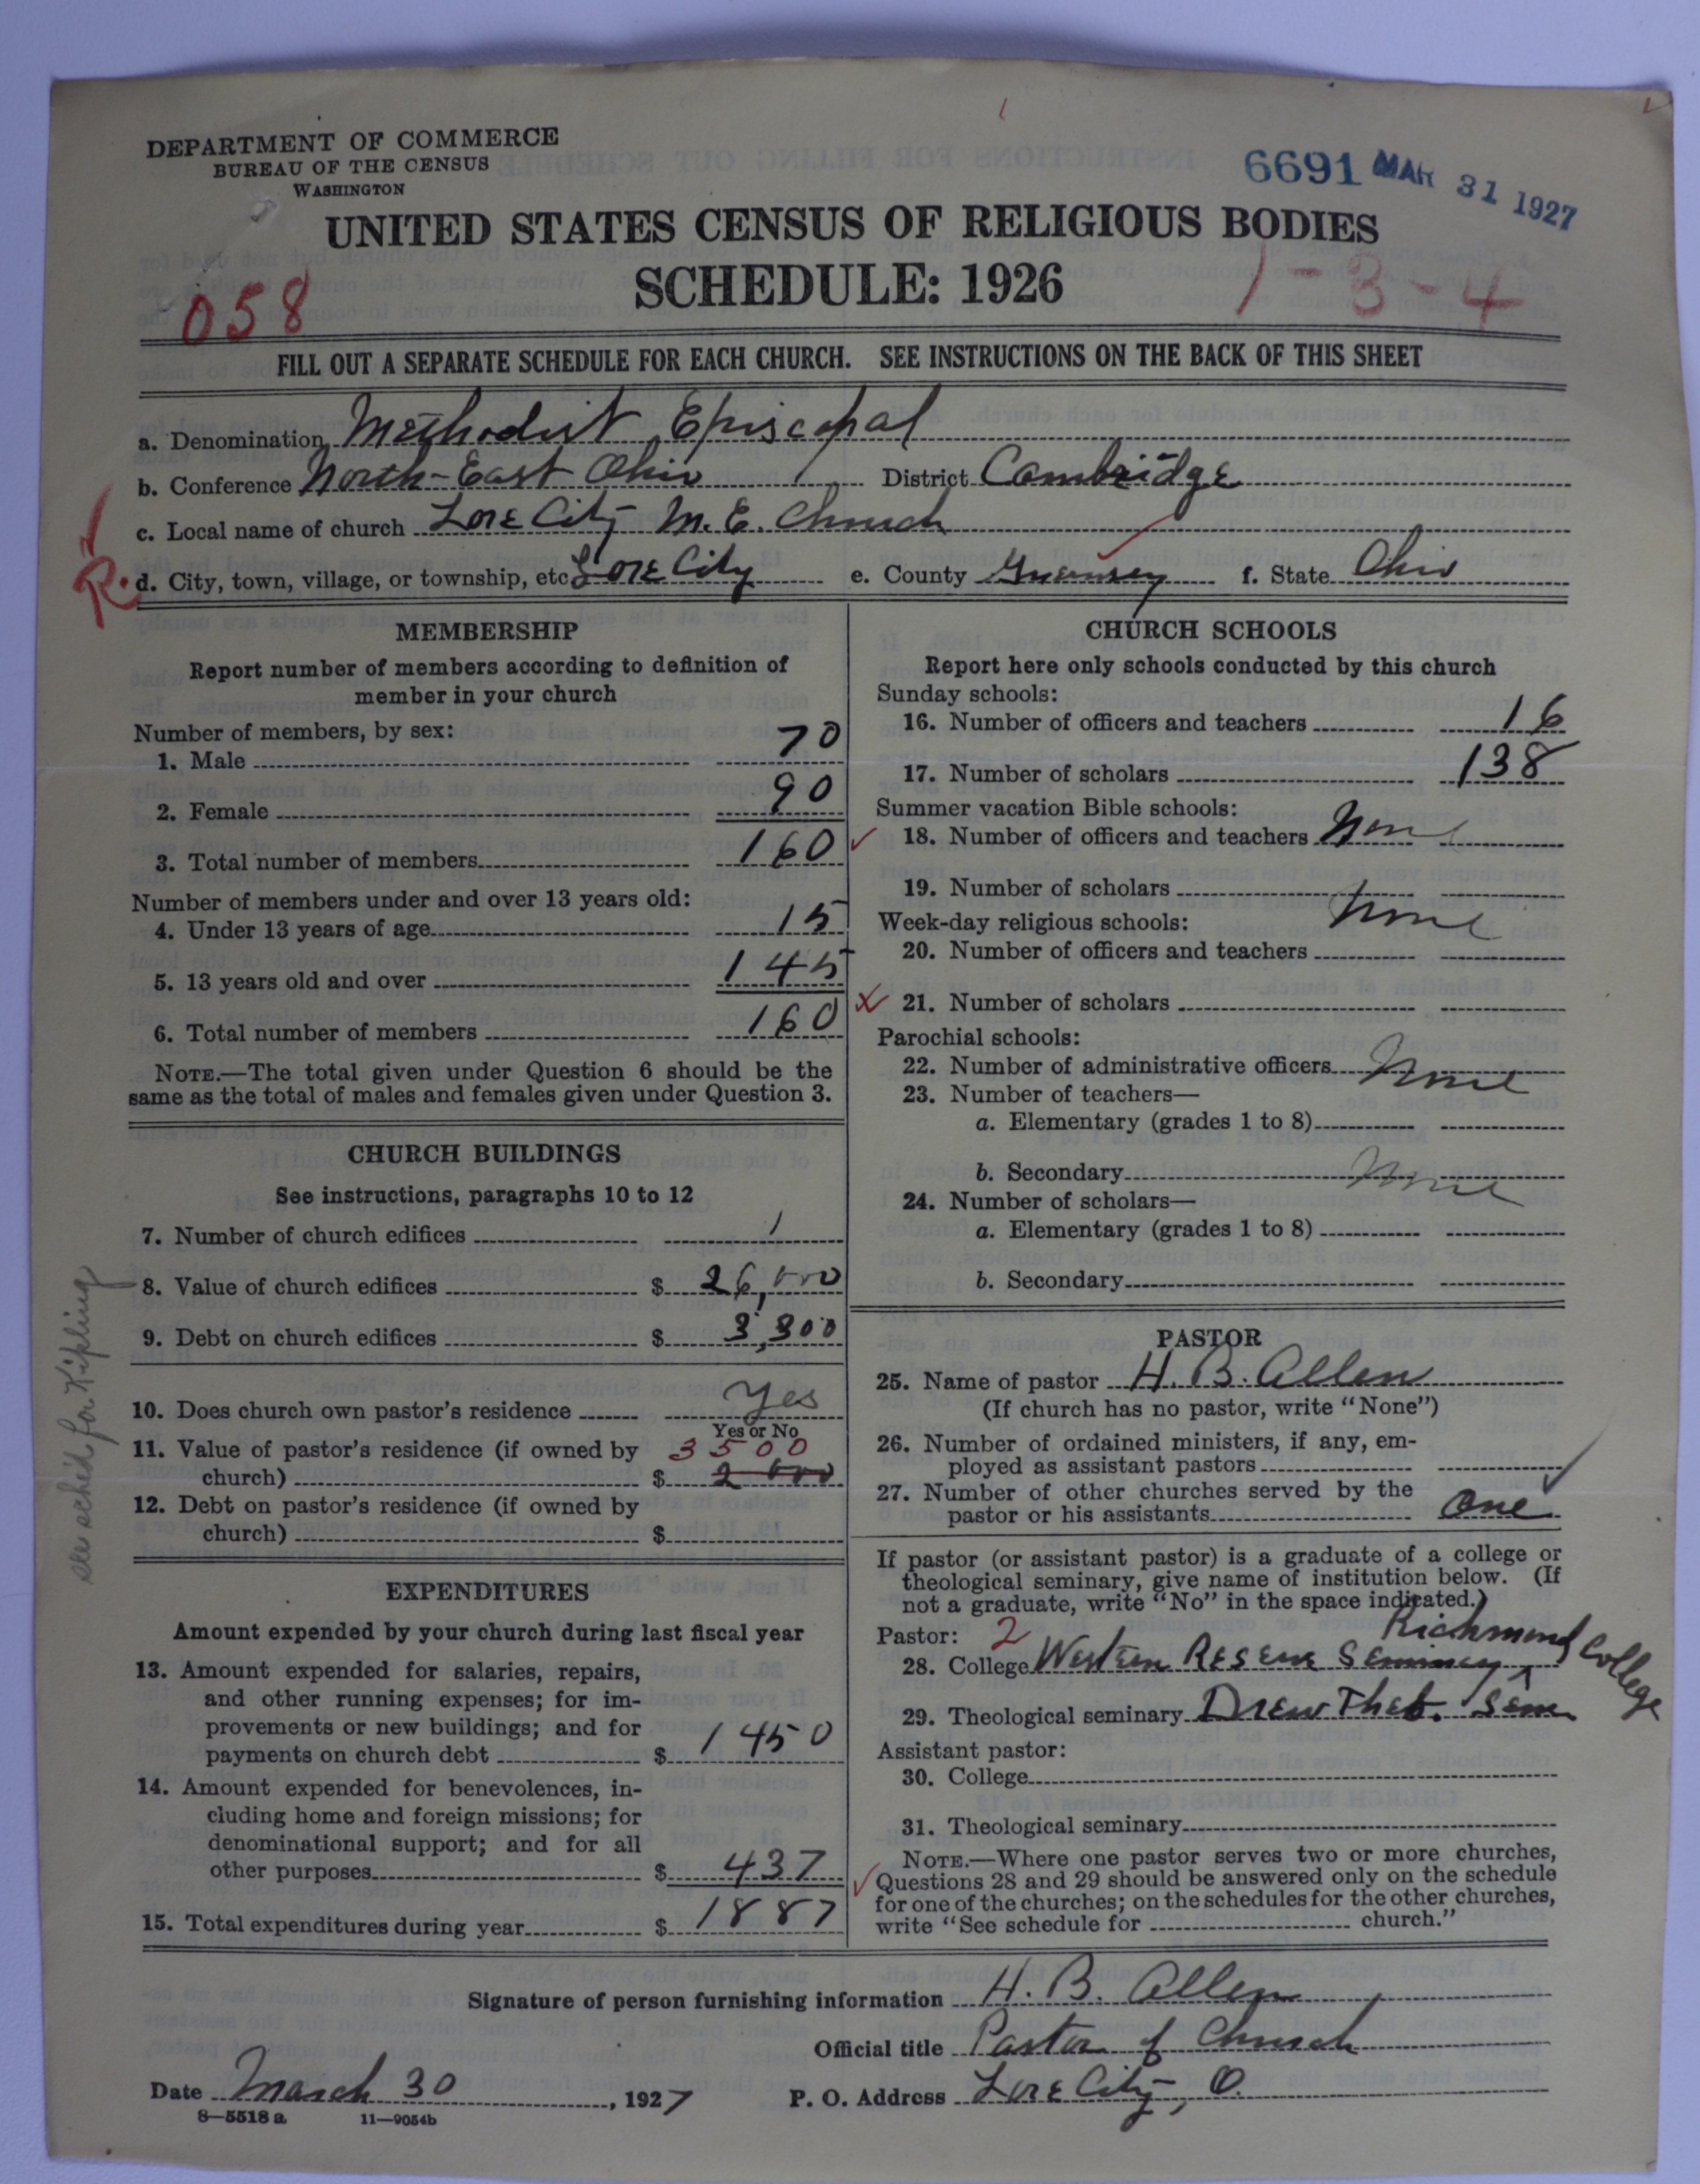 DEPARTMENT OF COMMERCE
BUREAU OF THE CENSUS
WASHINGTON
6691 MAR 31 1927
UNITED STATES CENSUS OF RELIGIOUS BODIES
SCHEDULE: 1926
058
1-3-4
FILL OUT A SEPARATE SCHEDULE FOR EACH CHURCH. SEE INSTRUCTIONS ON THE BACK OF THIS SHEET
a. Denomination Methodist Episcopal
b. Conference North-East Ohio District Cambridge
c. Local name of church Lore City M.E. Church
R. d. City, town, village, or township, etc Lore City e. County Guernsey f. State Ohio
MEMBERSHIP
Report number of members according to definition of
member in your church
Number of members, by sex:
1. Male 70
2. Female 90
3. Total number of members 160
Number of members under and over 13 years old:
4. Under 13 years of age 15
5. 13 years old and over 145
6. Total number of members 160
NOTE.—The total given under Question 6 should be the
same as the total of males and females given under Question 3.
CHURCH BUILDINGS
See instructions, paragraphs 10 to 12
7. Number of church edifices 1
8. Value of church edifices $ 26,000
9. Debt on church edifices $ 3,300
10. Does church own pastor's residence Yes
Yes or No
11. Value of pastor's residence (if owned by 3500
church) $ 2000
12. Debt on pastor's residence (if owned by
church) $
see sched for Kipling
EXPENDITURES
Amount expended by your church during last fiscal year
13. Amount expended for salaries, repairs,
and other running expenses; for im-
provements or new buildings; and for
payments on church debt $ 1450
14. Amount expended for benevolences, in-
cluding home and foreign missions; for
denominational support; and for all
other purposes $ 437
15. Total expenditures during year $ 1887
CHURCH SCHOOLS
Report here only schools conducted by this church
Sunday schools:
16. Number of officers and teachers 16
17. Number of scholars 138
Summer vacation Bible schools:
18. Number of officers and teachers None
19. Number of scholars
Week-day religious schools: None
20. Number of officers and teachers
21. Number of scholars
Parochial schools:
22. Number of administrative officers None
23. Number of teachers—
a. Elementary (grades 1 to 8)
b. Secondary None
24. Number of scholars—
a. Elementary (grades 1 to 8)
b. Secondary
PASTOR
25. Name of pastor H. B. Allen
(If church has no pastor, write "None")
26. Number of ordained ministers, if any, em-
ployed as assistant pastors
27. Number of other churches served by the
pastor or his assistants one
If pastor (or assistant pastor) is a graduate of a college or
theological seminary, give name of institution below. (If
not a graduate, write "No" in the space indicated.)
Pastor: 2 Richmond College
28. College Western Reserve Seminary
29. Theological seminary Drew Theo. Sem
Assistant pastor:
30. College
31. Theological seminary
NOTE.—Where one pastor serves two or more churches,
Questions 28 and 29 should be answered only on the schedule
for one of the churches; on the schedules for the other churches,
write "See schedule for church."
Signature of person furnishing information H. B. Allen
Official title Pastor of Church
Date March 30, 1927 P. O. Address Lore City, O.
8—5518 a 11—9054b